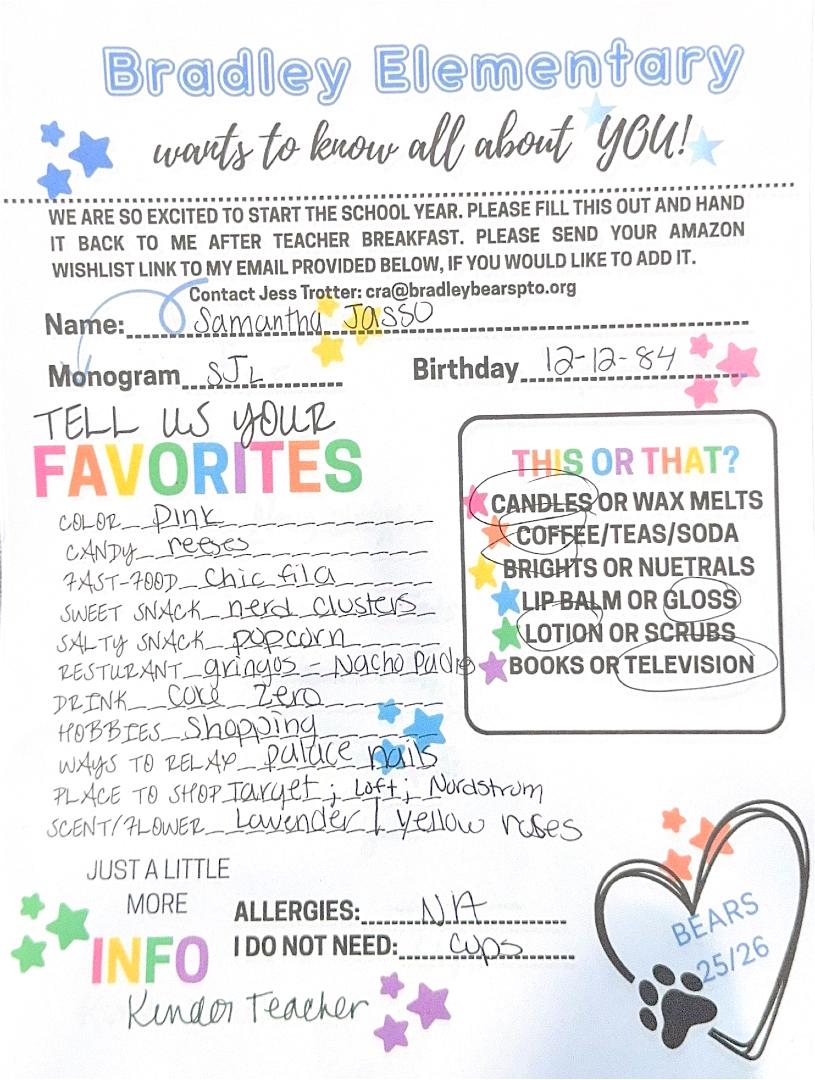 Bradley Elementary
wants to know all about YOU!
WE ARE SO EXCITED TO START THE SCHOOL YEAR. PLEASE FILL THIS OUT AND HAND
IT BACK TO ME AFTER TEACHER BREAKFAST. PLEASE SEND YOUR AMAZON
WISHLIST LINK TO MY EMAIL PROVIDED BELOW, IF YOU WOULD LIKE TO ADD IT.
Contact Jess Trotter: cra@bradleybearspto.org
Name: Samantha Jasso
Monogram SJL Birthday 12-12-84
TELL US YOUR
FAVORITES
COLOR pink
CANDY reeses
FAST-FOOD chic fila
SWEET SNACK nerd clusters
SALTY SNACK popcorn
RESTURANT gringos - Nacho Padre
DRINK coke zero
HOBBIES shopping
WAYS TO RELAX palace nails
PLACE TO SHOP Target ; Loft ; Nordstrom
SCENT/FLOWER Lavender / yellow roses
THIS OR THAT?
CANDLES OR WAX MELTS
COFFEE/TEAS/SODA
BRIGHTS OR NUETRALS
LIP BALM OR GLOSS
LOTION OR SCRUBS
BOOKS OR TELEVISION
JUST A LITTLE
MORE
INFO
ALLERGIES: NA
I DO NOT NEED: cups
Kinder Teacher
BEARS
25/26